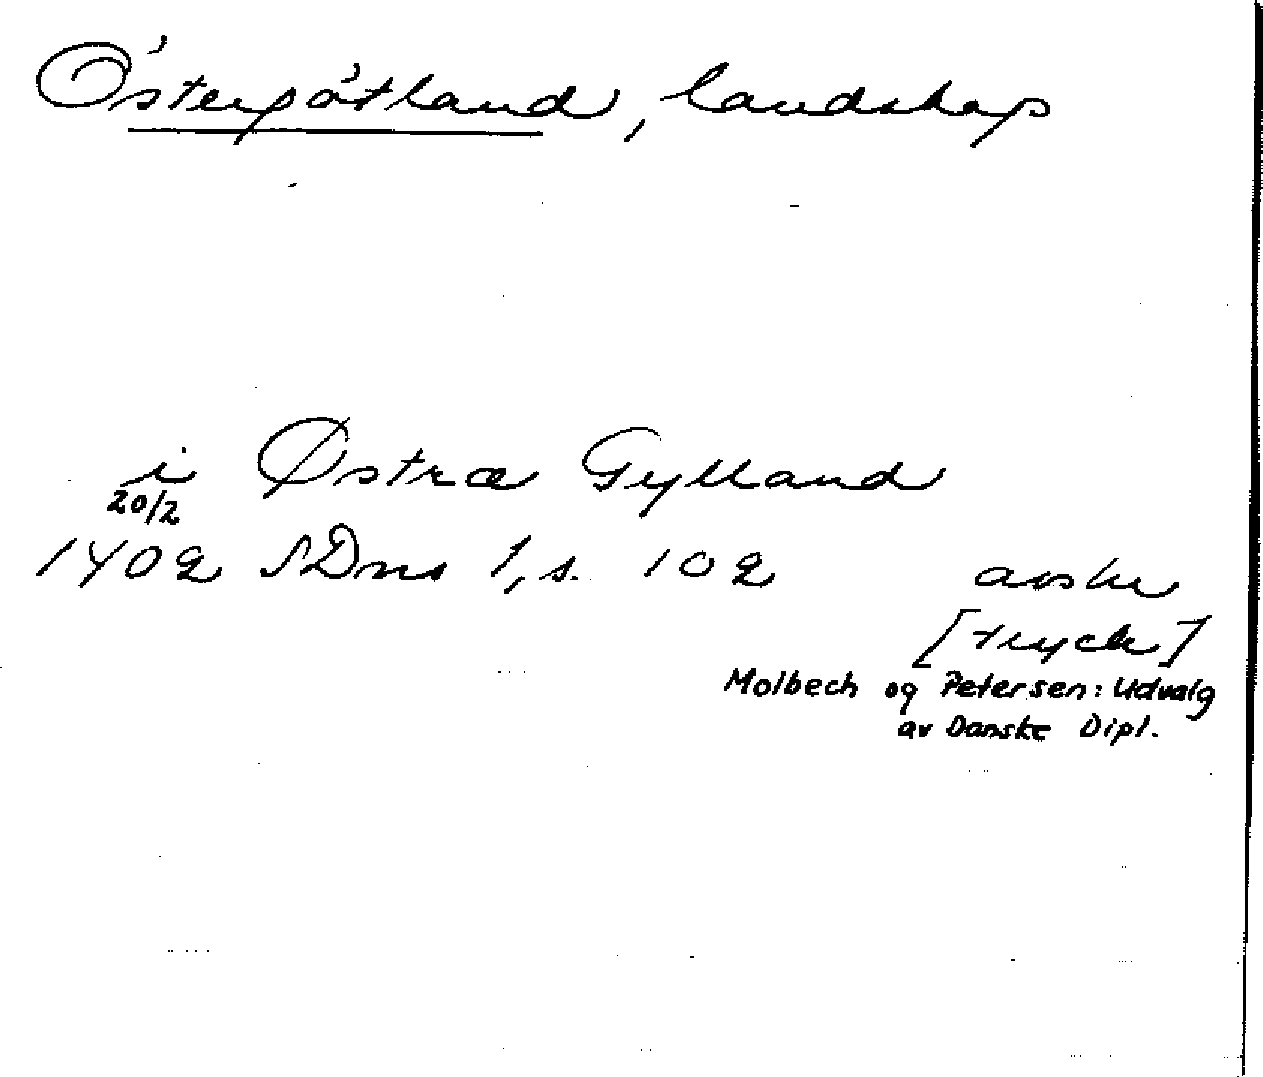 Östergötland, landskap
i Østræ Gylland
20/2
1402 SDns 1, s. 102 avskr
[tryck]
Molbech og Petersen: Udvalg
av Danske Dipl.